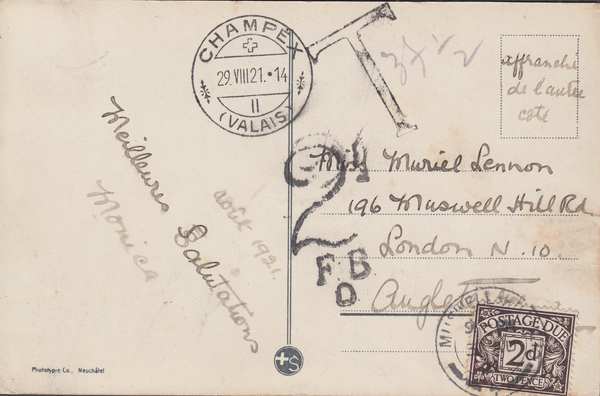 CHAMPEX
29.VIII 21.•14
II
(VALAIS)
T
affranchi
de l'autre
côté
Meilleures
Salutations
Monica
août 1921.
Miss Muriel Lennon
196 Muswell Hill Rd
London N. 10.
2d
F B
D
MUSWELL HILL
POSTAGE DUE
2d
TWO PENCE
+S
Phototypie Co., Neuchâtel